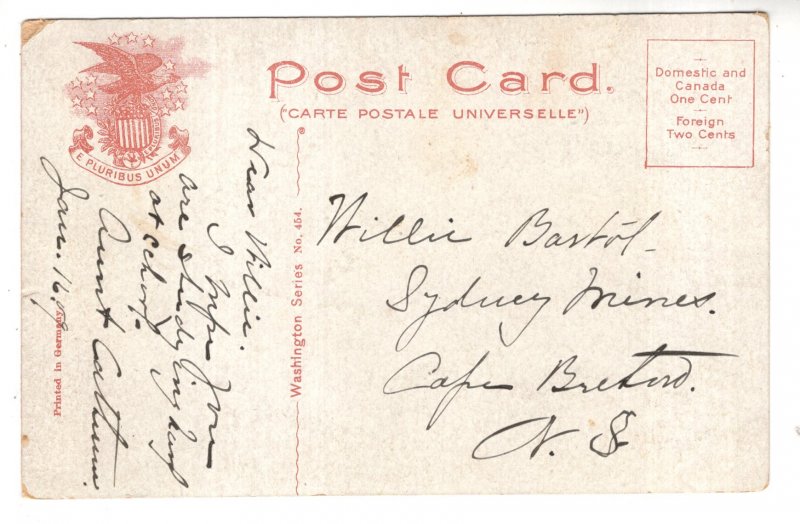 Post Card.
("CARTE POSTALE UNIVERSELLE")
Domestic and
Canada
One Cent
Foreign
Two Cents
E PLURIBUS UNUM
Washington Series No. 454.
Printed in Germany
Dear Willie.
I hope you
are studying hard
at school.
Aunt
Jan. 16. 09
Willie
Sydney Mines.
Cape Breton.
N. S